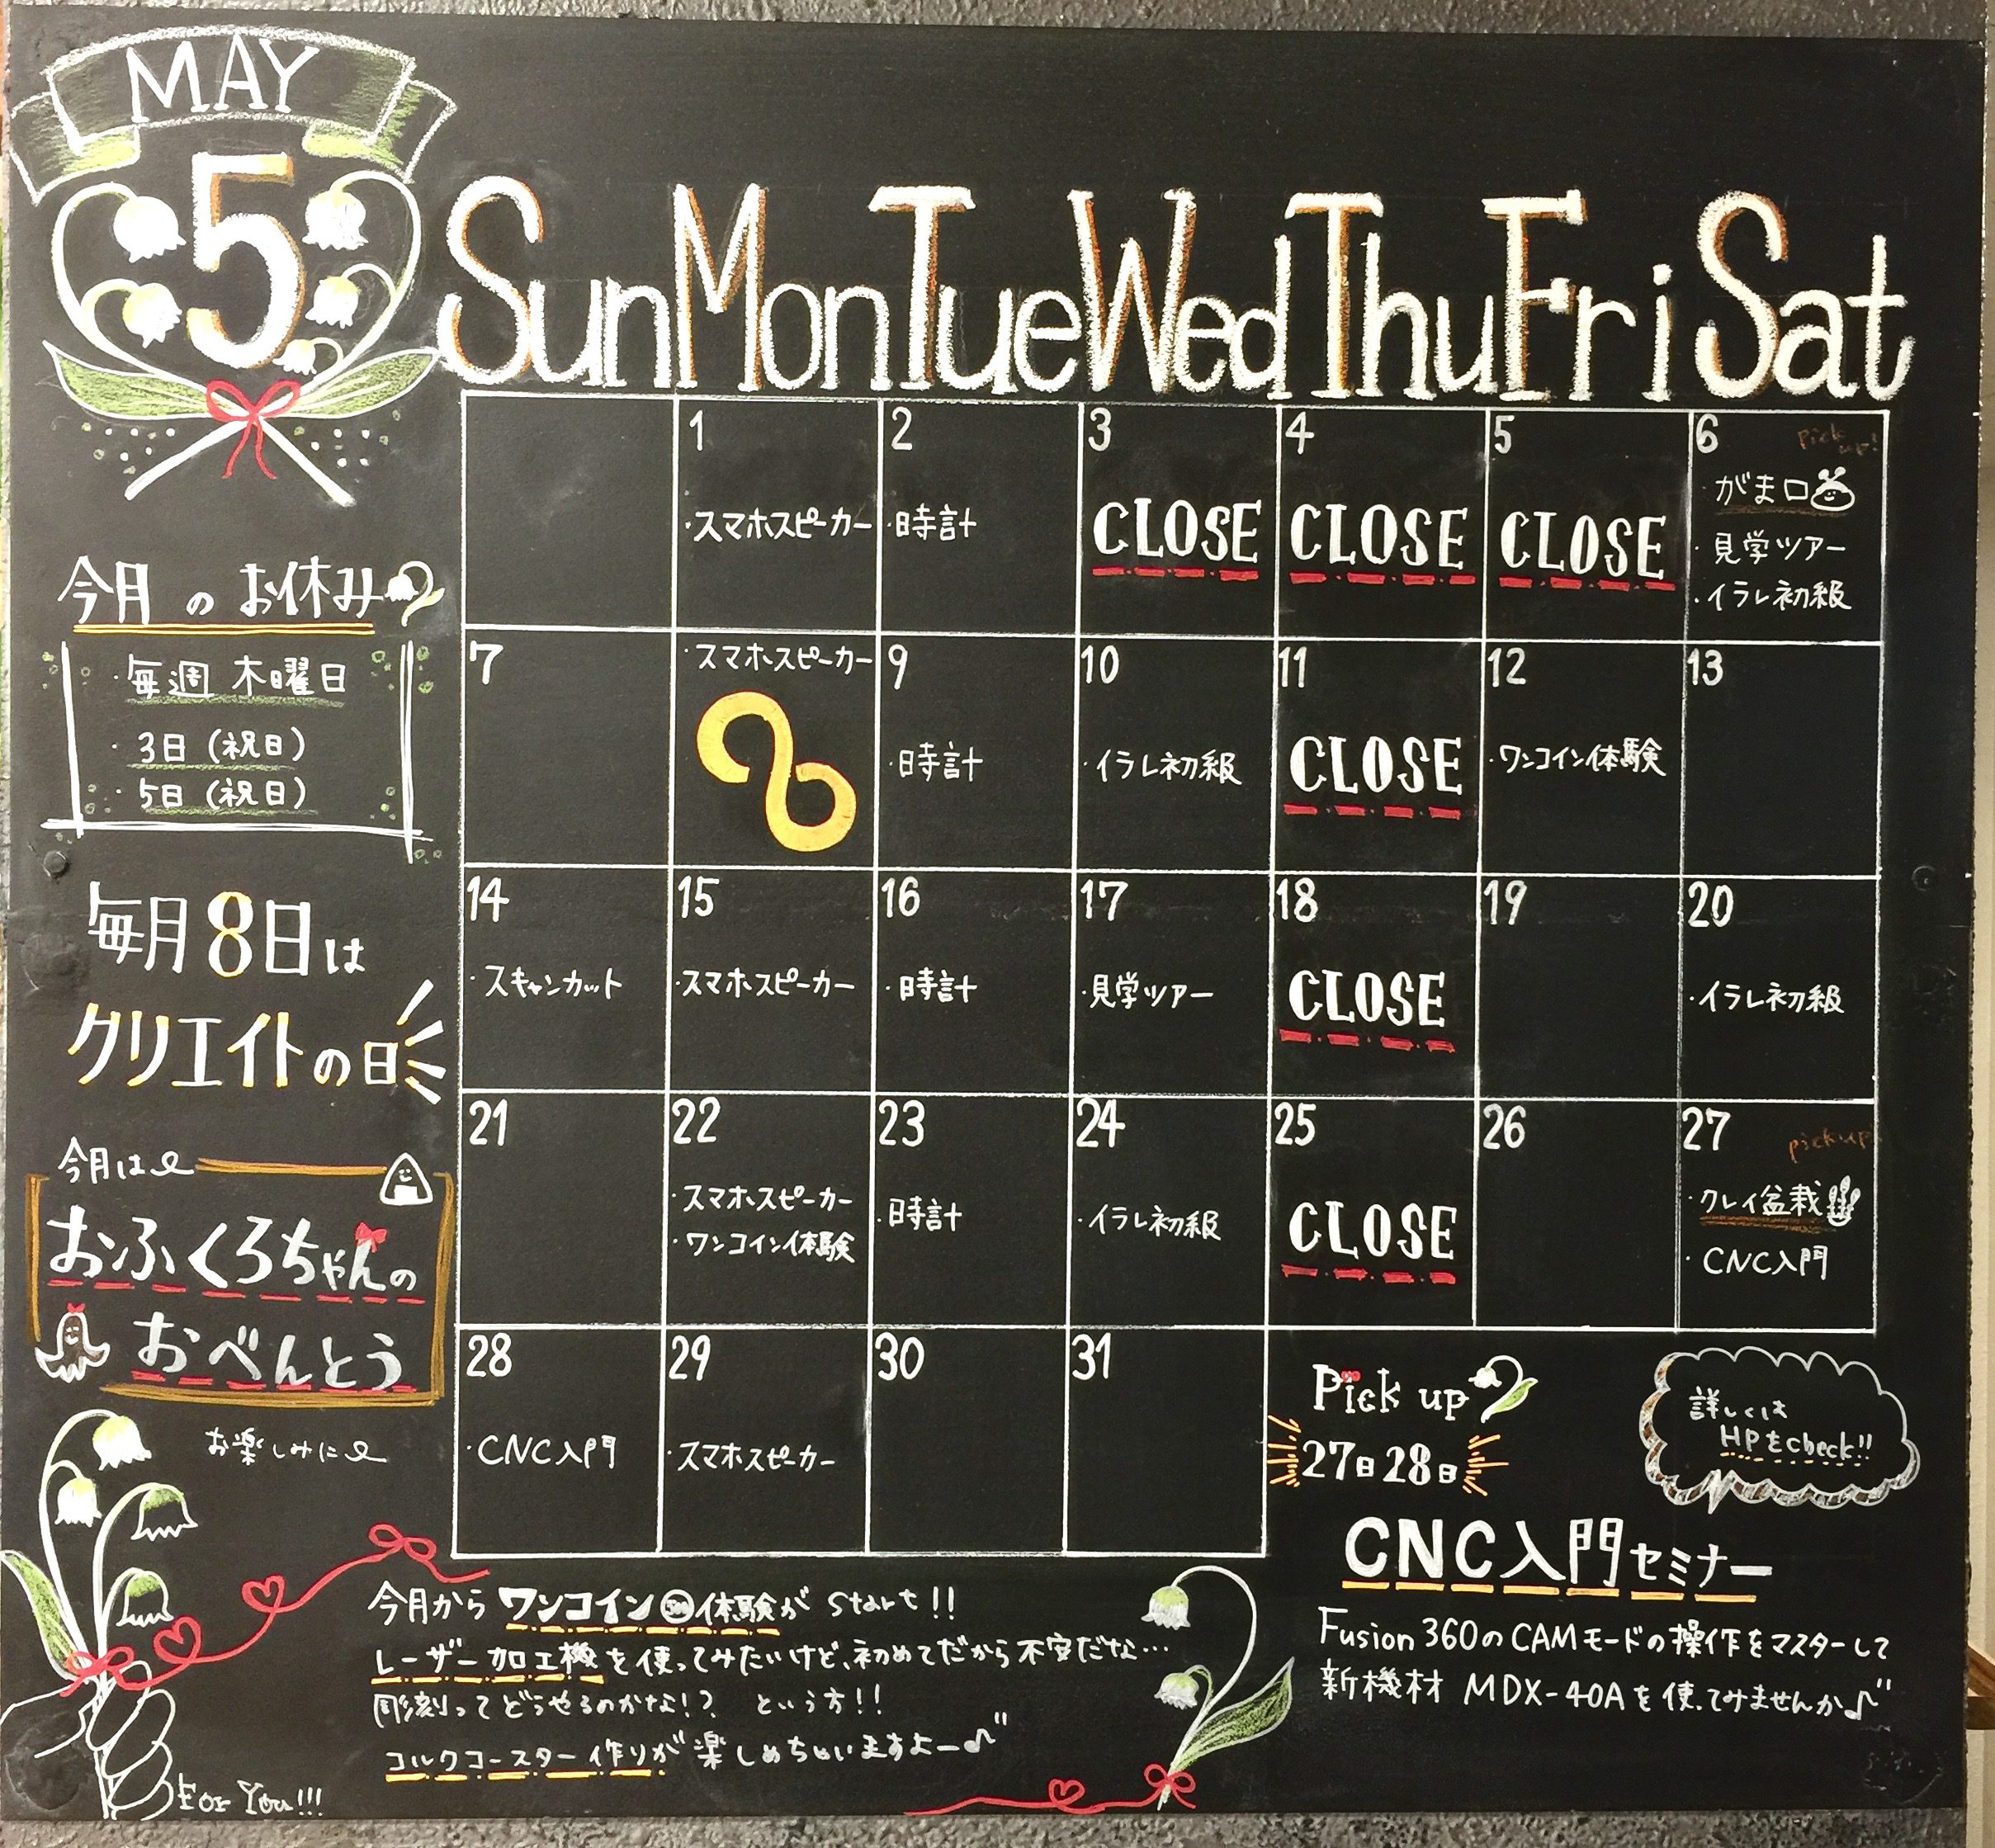 MAY
5
Sun Mon Tue Wed Thu Fri Sat
1
・スマホスピーカー
2
・時計
3
CLOSE
4
CLOSE
5
CLOSE
6
pick up!
・がま口
・見学ツアー
・イラレ初級
7
・スマホスピーカー
8
9
・時計
10
・イラレ初級
11
CLOSE
12
・ワンコイン体験
13
14
・スキャンカット
15
・スマホスピーカー
16
・時計
17
・見学ツアー
18
CLOSE
19
20
・イラレ初級
21
22
・スマホスピーカー
・ワンコイン体験
23
・時計
24
・イラレ初級
25
CLOSE
26
27
pick up!
・クレイ盆栽
・CNC入門
28
・CNC入門
29
・スマホスピーカー
30
31
今月のお休み
・毎週 木曜日
・3日(祝日)
・5日(祝日)
毎月8日は
クリエイトの日
今月は
おふくろちゃんの
おべんとう
お楽しみに
For You!!!
今月からワンコイン体験が start!!
レーザー加工機を使ってみたいけど、初めてだから不安だな…
彫刻ってどうやるのかな!? という方!!
コルクコースター作りが楽しめちゃいますよー♪"
Pick up
27日28日
詳しくは
HPをcheck!!
CNC入門セミナー
Fusion 360のCAMモードの操作をマスターして
新機材 MDX-40Aを使ってみませんか♪"